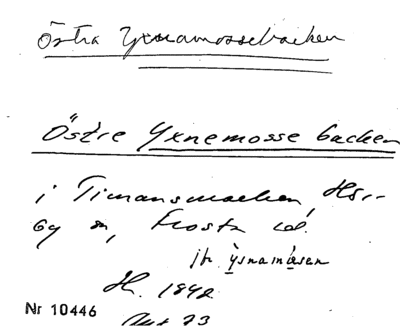 Östra Yxnamossebacken
Östre Yxnemosse backen
i Timansmarken, Hör-
by sn, Frosta hd.
jfr ỳsnamåsen
H. 1892
Nr 10446